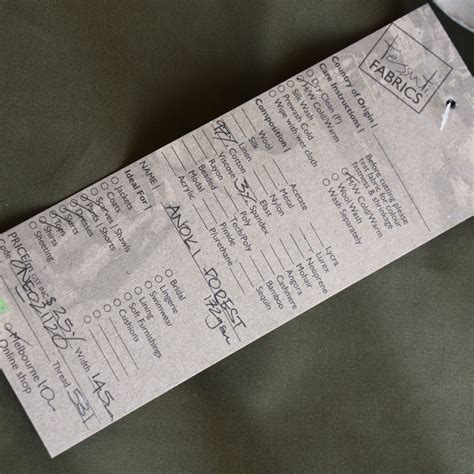 Tessuti
FABRICS
Country of Origin |
Care Instructions |
Dry Clean (P)
H/W Cold/Warm
Silk Wash
Prewash Cold
Wipe with wet cloth
Before cutting please
test bar & for colour
fastness & shrinkage
H/W Cold/Warm
Wool Wash
Wash Separately
Composition |
Wool
Silk
Linen
97% Cotton
Viscose
Rayon
Beaded
Modal
Acrylic
Acetate
Metal
Nylon
Elast
3% Spandex
Poly
Tech/Poly
Pinnde
Plurethane
Lycra
Lurex
Neoprene
Mohair
Angora
Cashmere
Bamboo
Sequin
NAME | ANOKI FOREST
172gsm
Ideal For |
Jackets
Coats
Pants
Shorts
Dresses
Skirts
Tops
Shirts
Sheering
Bridal
Lingerie
Swimwear
Soft Furnishings
Cushions
$25
Width 145
Code
Thread 531
Melbourne 10
Online shop